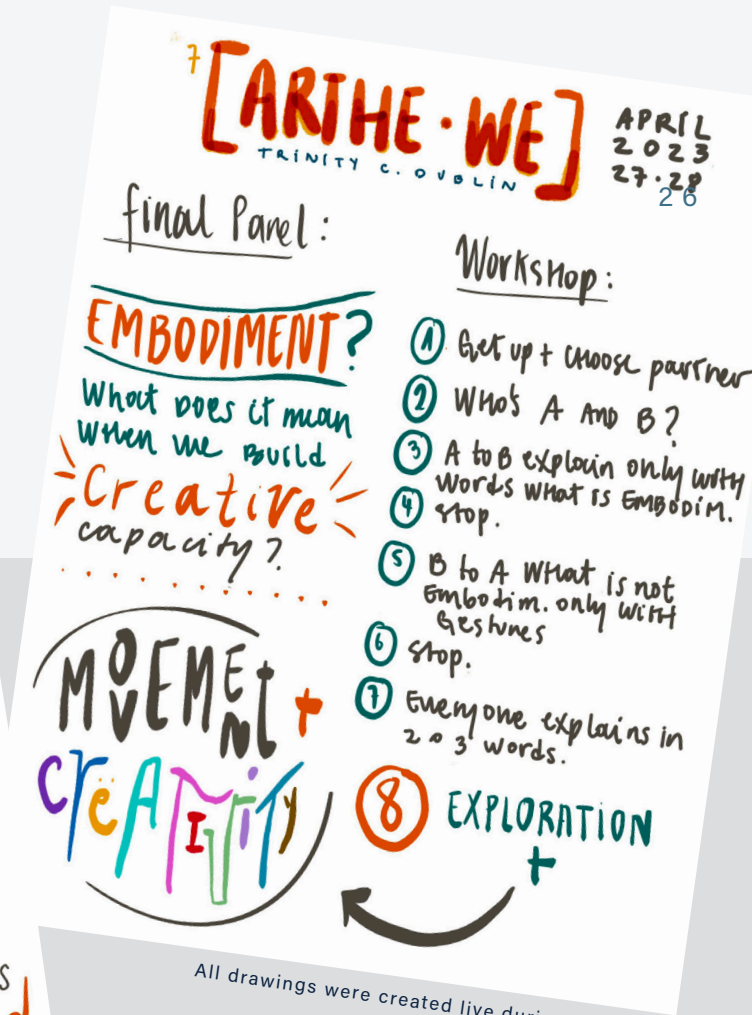 7
[ARTHE·WE]
TRINITY C. DUBLIN
APRIL
2023
27·28
26
final Panel:
EMBODIMENT?
What DOES it mean
WHen we BUILD
Creative
capacity?
MOVEMENt +
CrëATIViTy
Workshop:
1 Get up + CHOOSE partner
2 WHO'S A AND B?
3 A to B explain only with
words WHAT IS EMBODIM.
4 stop.
5 B to A WHAT is not
Embodim. only WITH
Gestures
6 stop.
7 Everyone explains in
2 o 3 words.
8 EXPLORATION
+
All drawings were created live